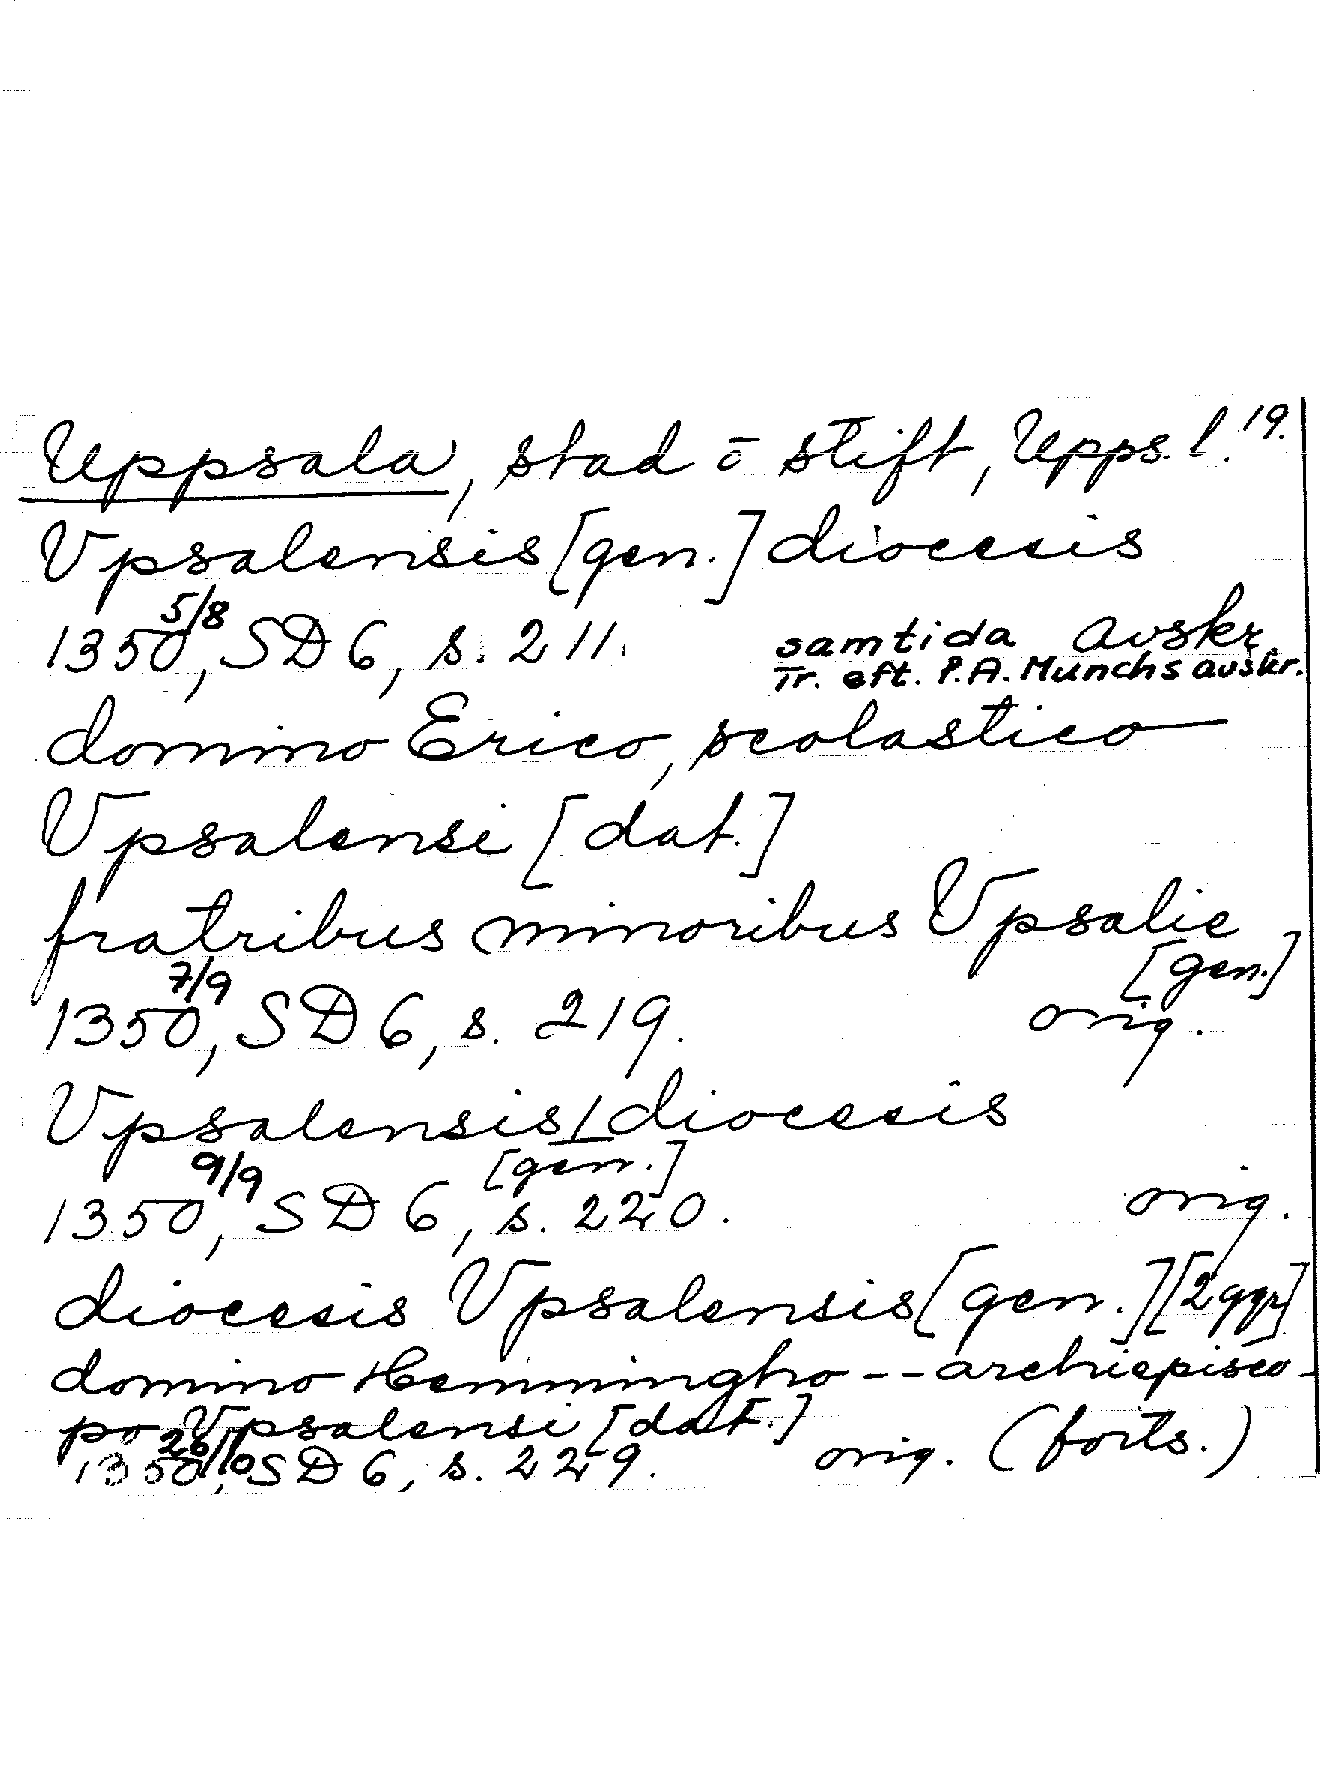 Uppsala, stad o̅ stift, Upps. l. 19.
Vpsalensis [gen.] diocesis
1350 5/8, SD 6, s. 211. samtida Avskr
Tr. eft. P.A. Munchs avskr.
domino Erico, scolastico
Vpsalensi [dat.]
fratribus minoribus Vpsalie
[gen.]
1350 7/9, SD 6, s. 219. orig.
Vpsalensis/diocesis
[gen.]
1350 9/9, SD 6, s. 220. orig.
diocesis Vpsalensis [gen.] [2 ggr]
domino Hemmingho -- archiepisco-
po Vpsalensi [dat.]
1350 26/10, SD 6, s. 229. orig. (forts.)